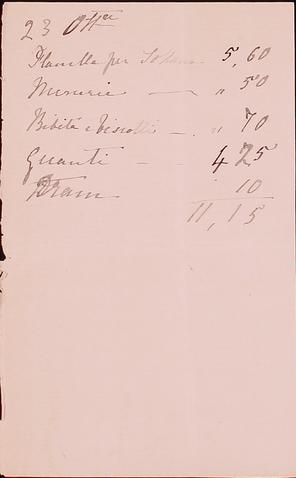 23 Ott.re
Flanella per Sottana 5,60
Mercerie — " 50
Bibita e biscotti — . " 70
Guanti - - 4 25
Tram " 10
11,15